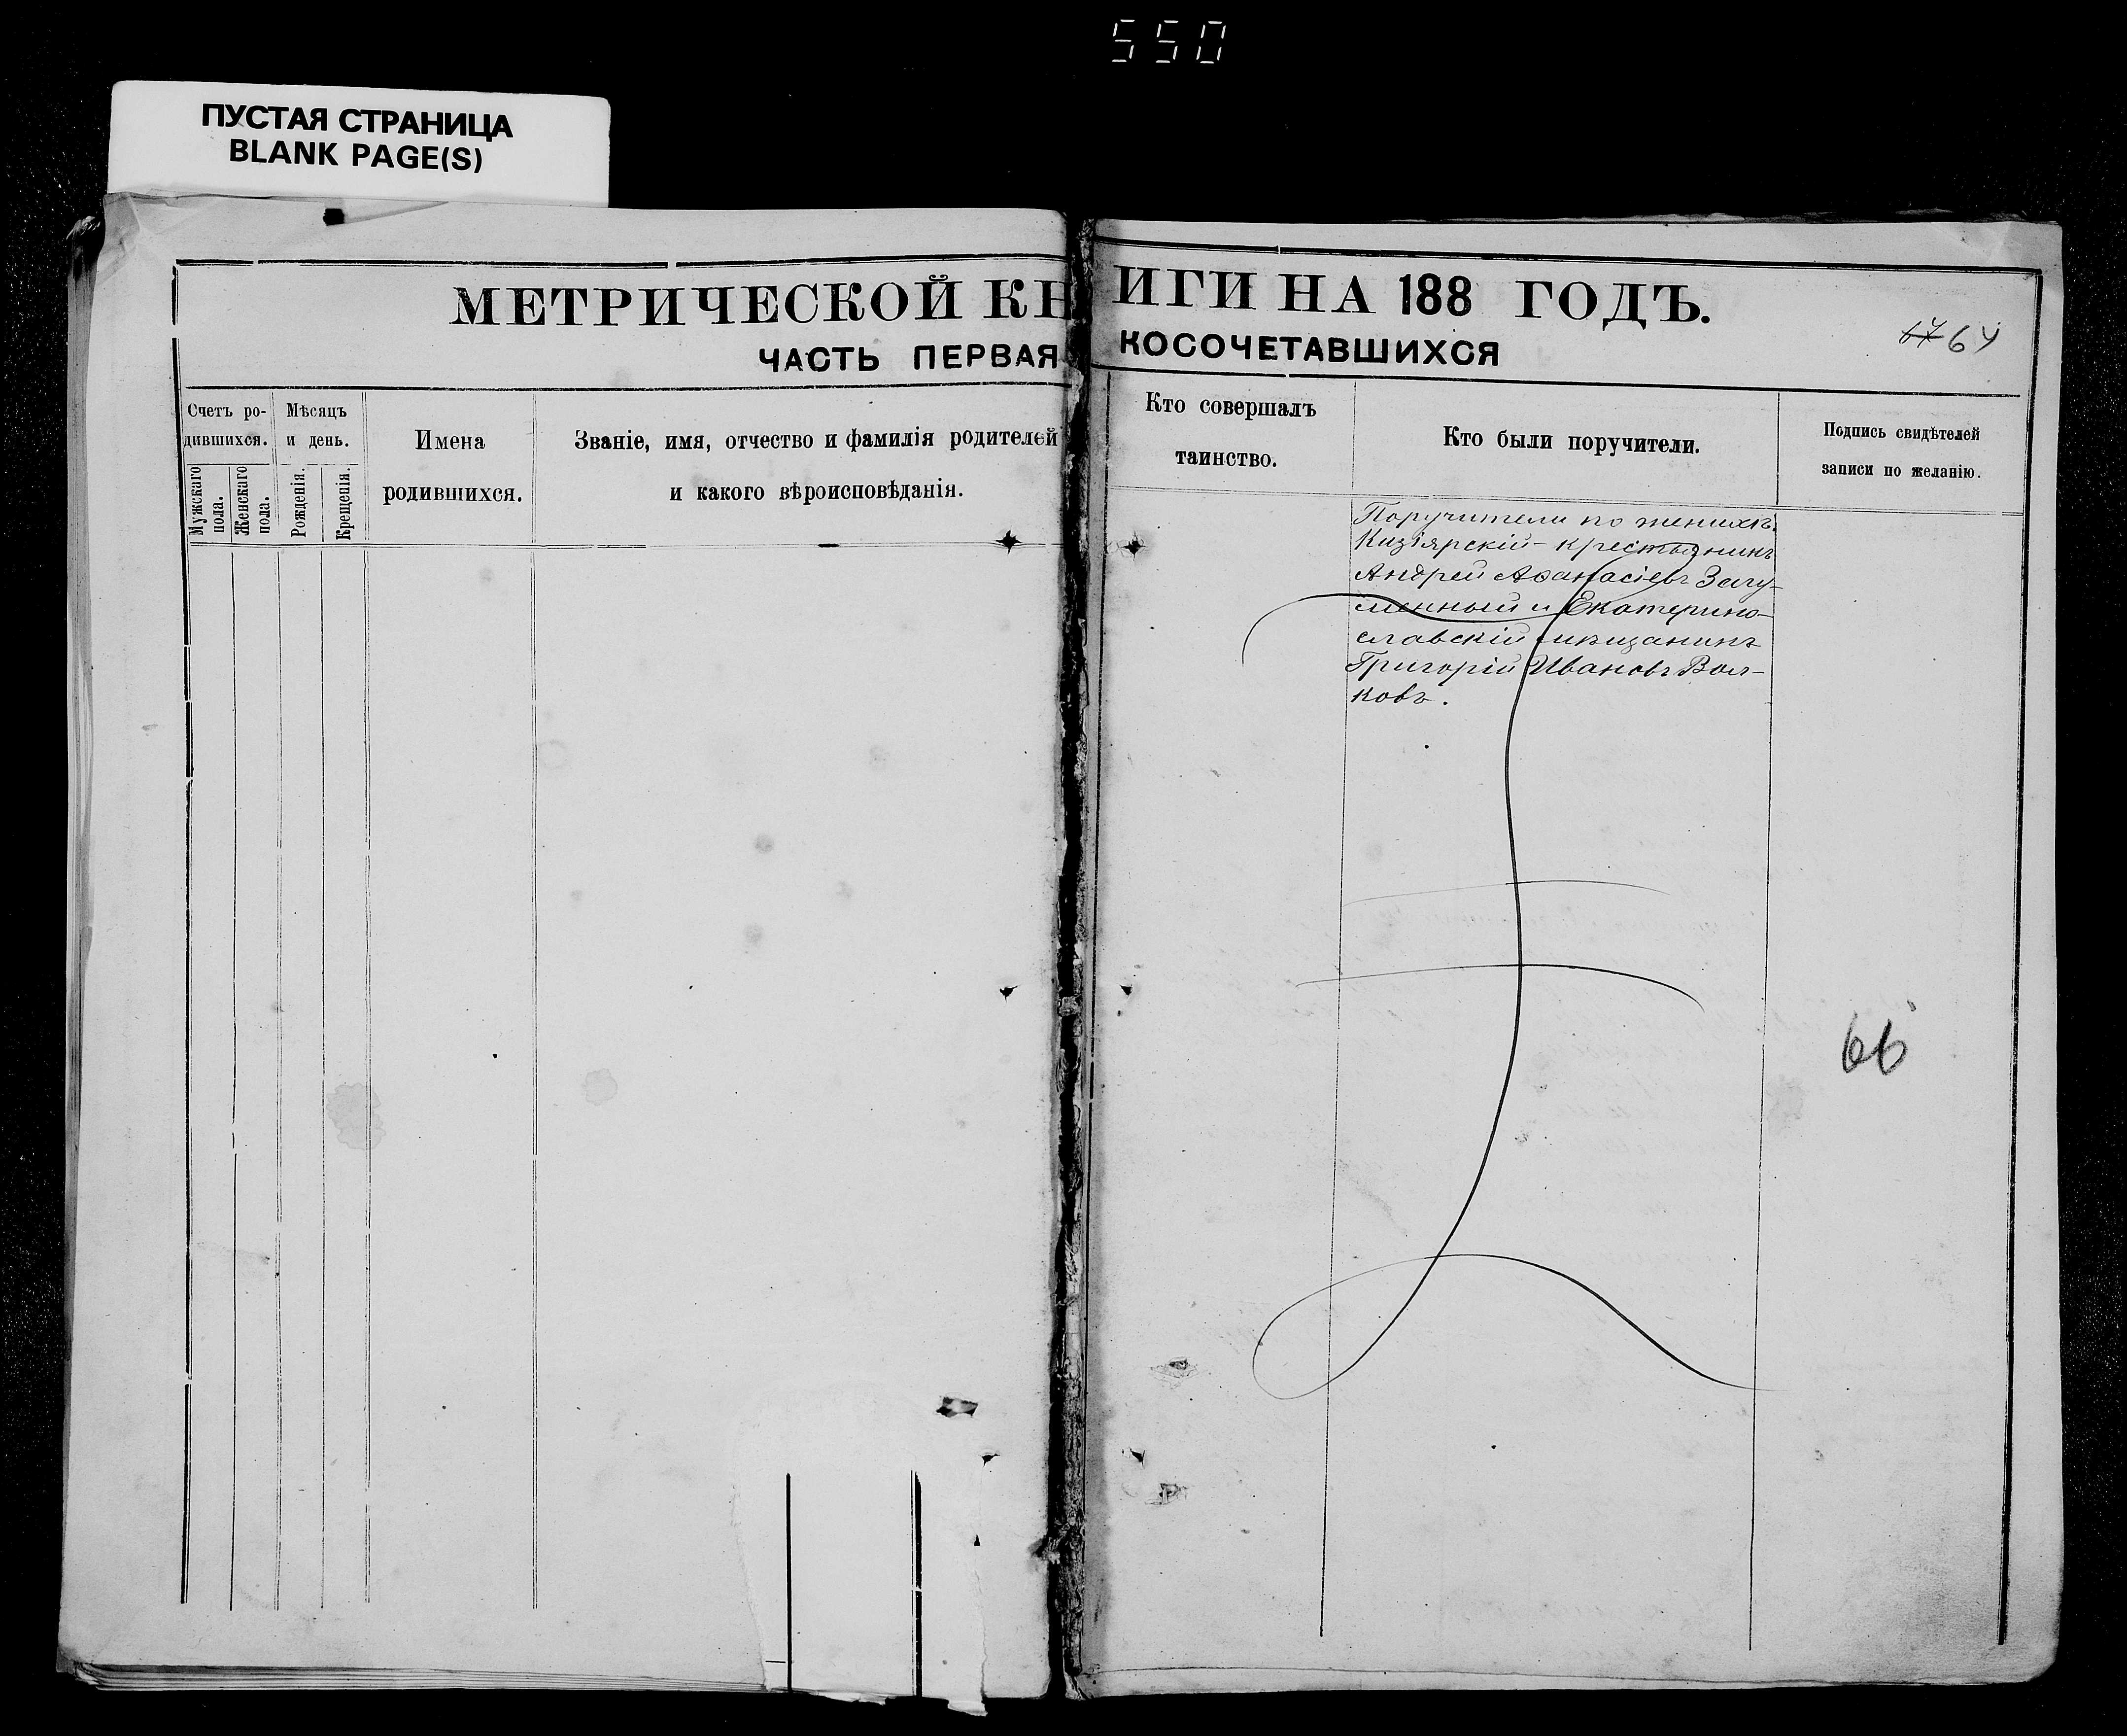 550
ПУСТАЯ СТРАНИЦА
BLANK PAGE(S)
МЕТРИЧЕСКОЙ КН
ЧАСТЬ ПЕРВАЯ
Счетъ ро-
дившихся.
Мужскаго пола.
Женскаго пола.
Мѣсяцъ
и день.
Рожденія.
Крещенія.
Имена
родившихся.
Званіе, имя, отчество и фамилія родителей
и какого вѣроисповѣданія.
ИГИ НА 188 ГОДЪ.
КОСОЧЕТАВШИХСЯ
64
Кто совершалъ
таинство.
Кто были поручители.
Подпись свидѣтелей
записи по желанію.
Поручители по женихѣ:
Кизіярскій крестьянинъ
Андрей Аѳанасіевъ Загу-
менный и Екатерино-
славскій мѣщанинъ
Григорій Ивановъ Вол-
ковъ.
66